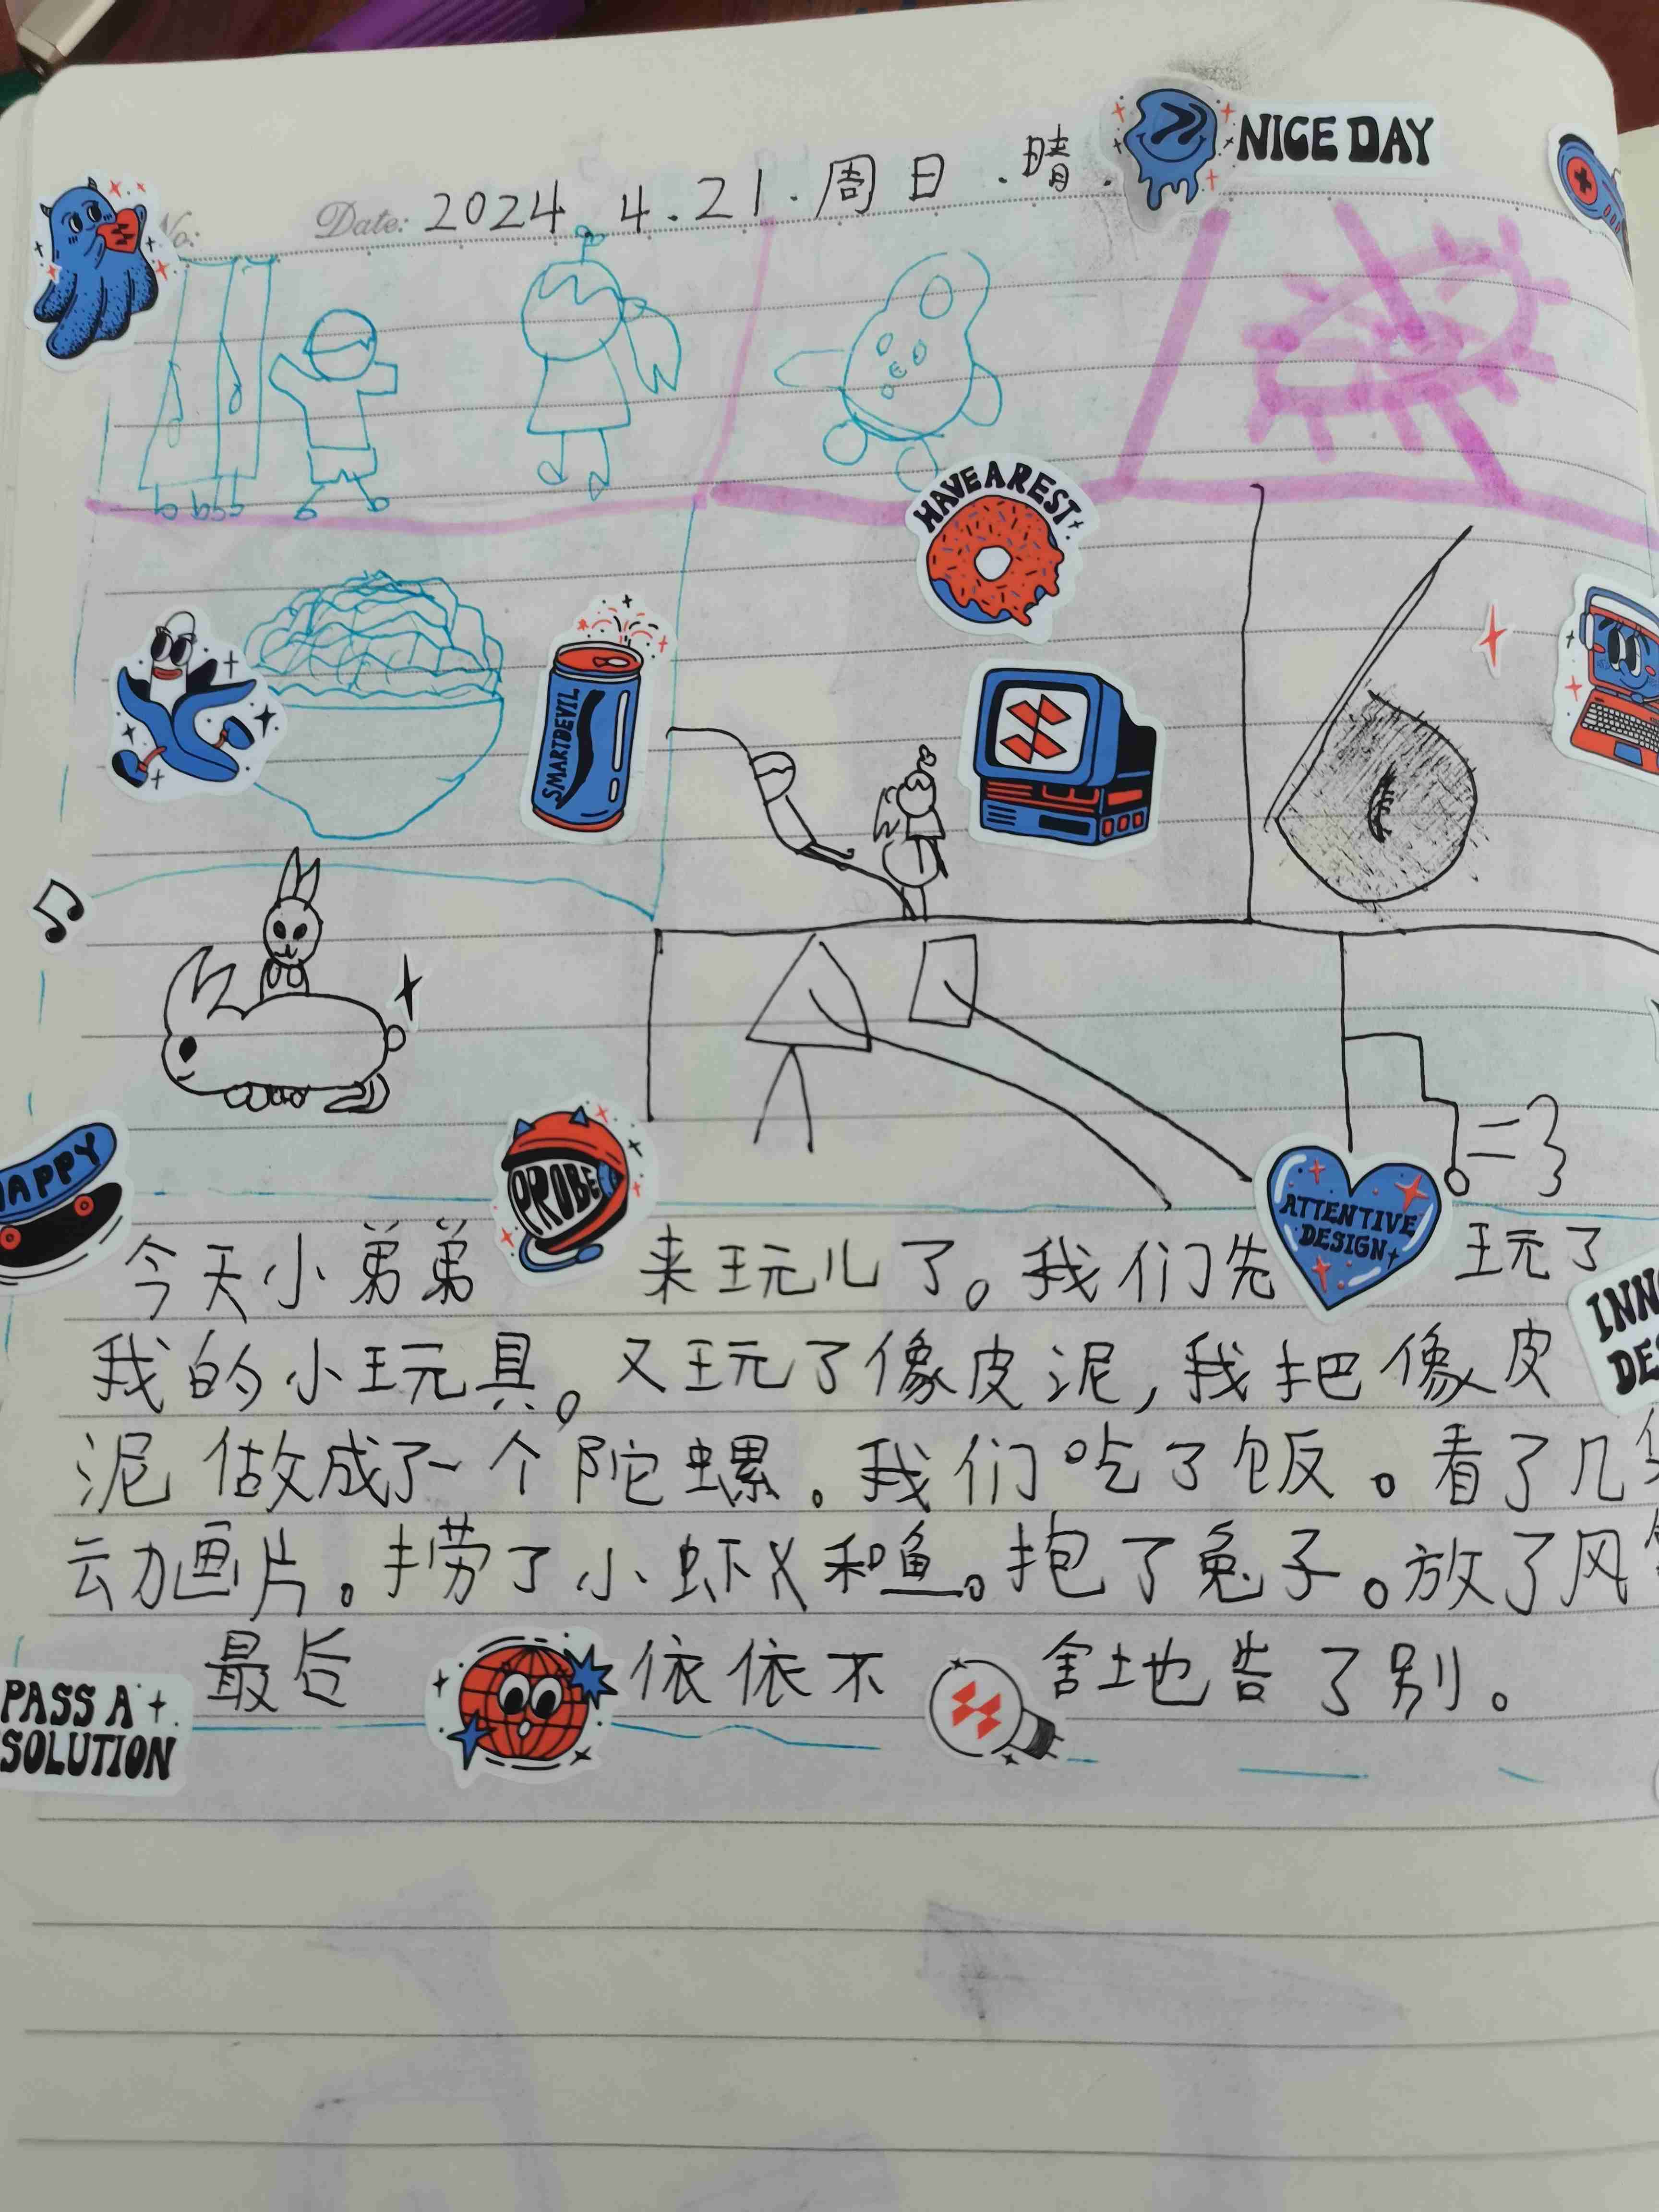 NICE DAY
No:
Date: 2024.4.21.周日.晴.
HAVE A REST
SMARTDEVIL
HAPPY
PROBE
ATTENTIVE DESIGN
今天小弟弟来玩儿了。我们先玩了
INN
DES
我的小玩具。又玩了像皮泥,我把像皮
泥做成了一个陀螺。我们吃了饭。看了几
动画片。捞了小虾米和鱼。抱了兔子。放了风
最后依依不舍地告了别。
PASS A SOLUTION